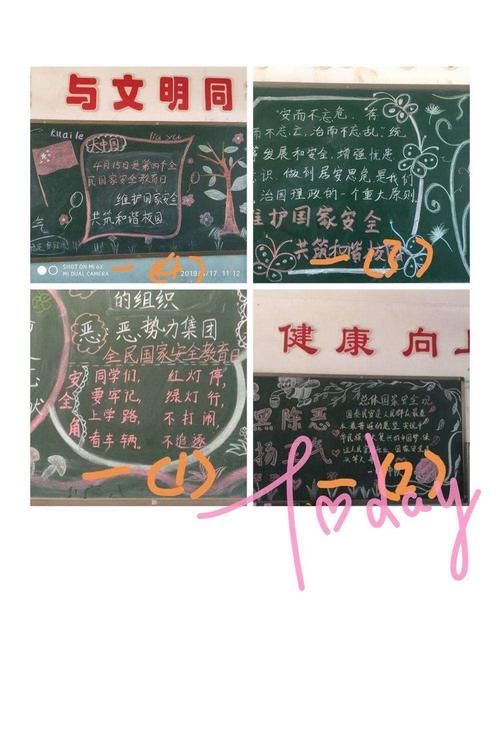 与文明同
kuaile
liu yue
大中国
4月15日是第四个全
民国家安全教育日
维护国家安全
共筑和谐校园
气
SHOT ON MI 6X
MI DUAL CAMERA
11:12
一(4)
"安而不忘危，存
而不忘亡，治而不忘乱。"统
筹发展和安全，增强忧患
识，做到居安思危，是我们
治国理政的一个重大原则
维护国家安全
共筑和谐校园
一(3)
的组织
恶 恶势力集团
全民国家安全教育日
安全角
同学们， 红灯停，
要牢记， 绿灯行，
上学路， 不打闹，
看车辆。 不追逐
一(1)
健康 向上
黑除恶
扬 气
总体国家安全观
国泰民安是人民群众最基
一(2)
Today